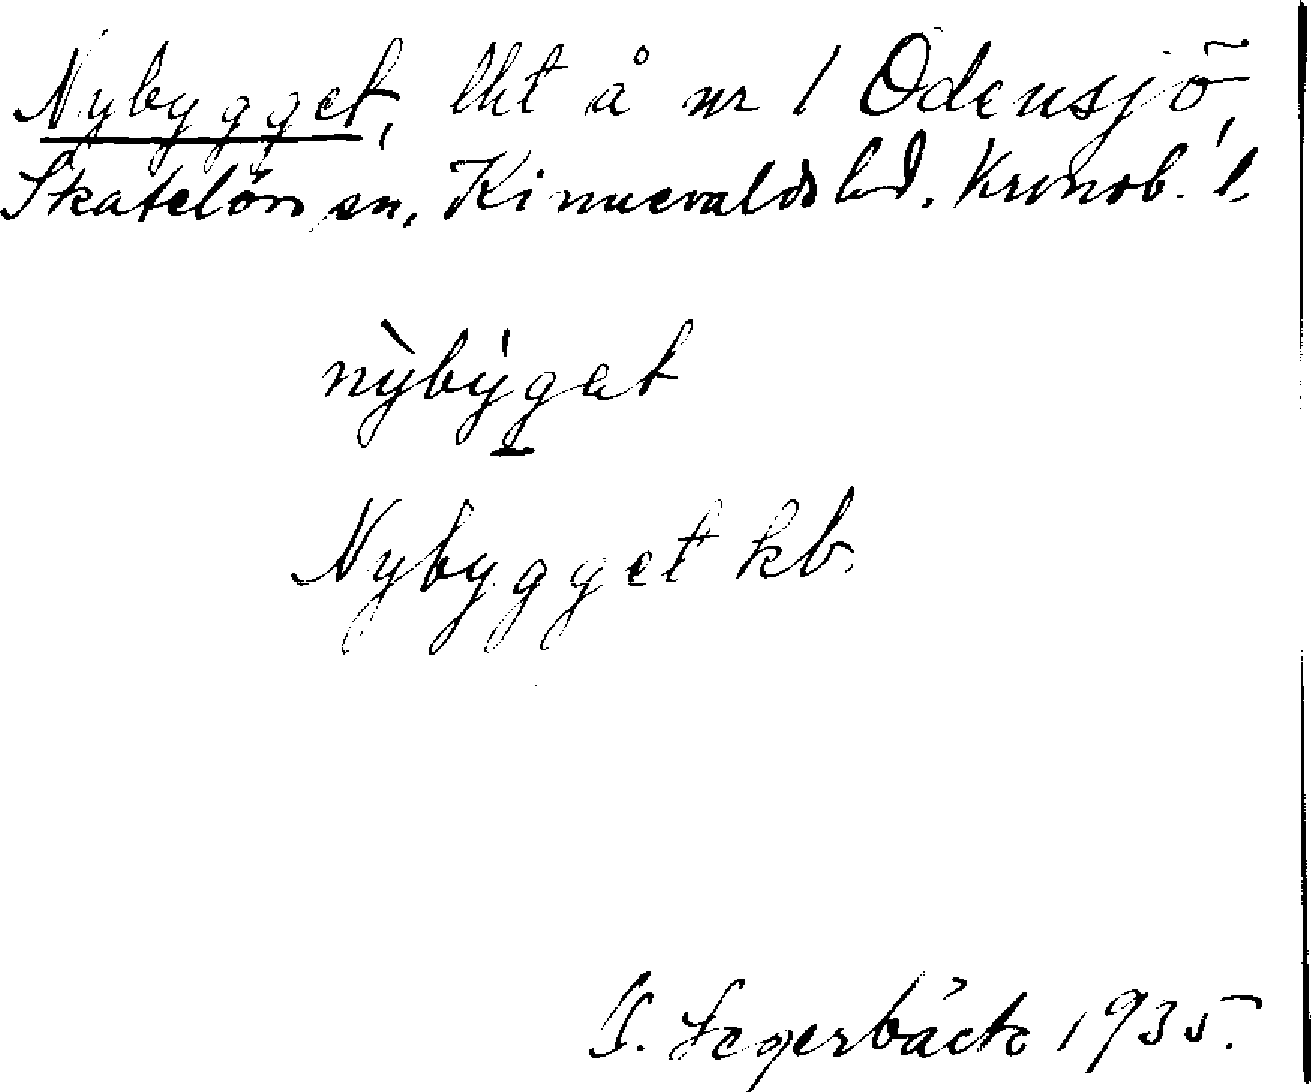 Nybygget, lht å nr 1 Odensjö,
Skatelövs sn, Kinnevalds hd. Kronob. l.
nỳbýgat
Nybygget kb.
Segerbäck 1935.